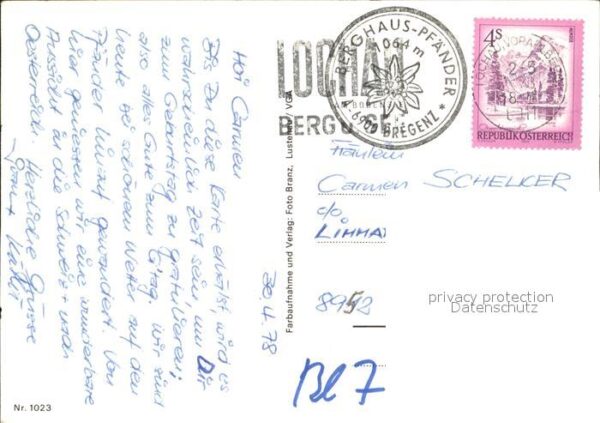 Hoi Carmen
Bis Du diese Karte erhältst, wird es
wahrscheinlich Zeit sein, um Dir
zum Geburtstag zu gratulieren;
also alles Gute zum G'tag. Wir sind
heute bei schönem Wetter auf den
Pfänder hinauf gewandert. Von
hier geniessen wir eine wunderbare
Aussicht in die Schweiz + nach
Oesterreich. Herzliche Grüsse
30.4.78
Nr. 1023
Farbaufnahme und Verlag: Foto Branz, Lustenau / VGA
LOCHAU
AM BODENSEE
BERG u. SEE
BERGHAUS-PFÄNDER
1064 m
* 6900 BREGENZ *
4S
REPUBLIK ÖSTERREICH
Fräulein
Carmen SCHELKER
c/o
LIMMA
8952
privacy protection
Datenschutz
Bl 7